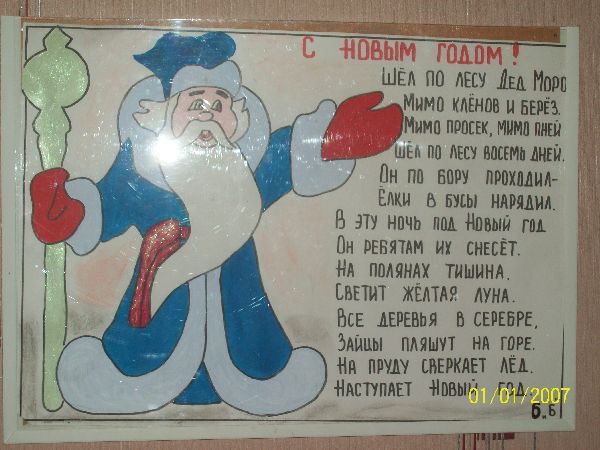 С НОВЫМ ГОДОМ!
ШЁЛ ПО ЛЕСУ ДЕД МОРО
МИМО КЛЁНОВ И БЕРЁЗ.
МИМО ПРОСЕК, МИМО ПНЕЙ
ШЁЛ ПО ЛЕСУ ВОСЕМЬ ДНЕЙ.
ОН ПО БОРУ ПРОХОДИЛ-
ЁЛКИ В БУСЫ НАРЯДИЛ.
В ЭТУ НОЧЬ ПОД НОВЫЙ ГОД
ОН РЕБЯТАМ ИХ СНЕСЁТ.
НА ПОЛЯНАХ ТИШИНА.
СВЕТИТ ЖЁЛТАЯ ЛУНА.
ВСЕ ДЕРЕВЬЯ В СЕРЕБРЕ,
ЗАЙЦЫ ПЛЯШУТ НА ГОРЕ.
НА ПРУДУ СВЕРКАЕТ ЛЁД.
НАСТУПАЕТ НОВЫЙ ГОД.
01/01/2007
Б.Б